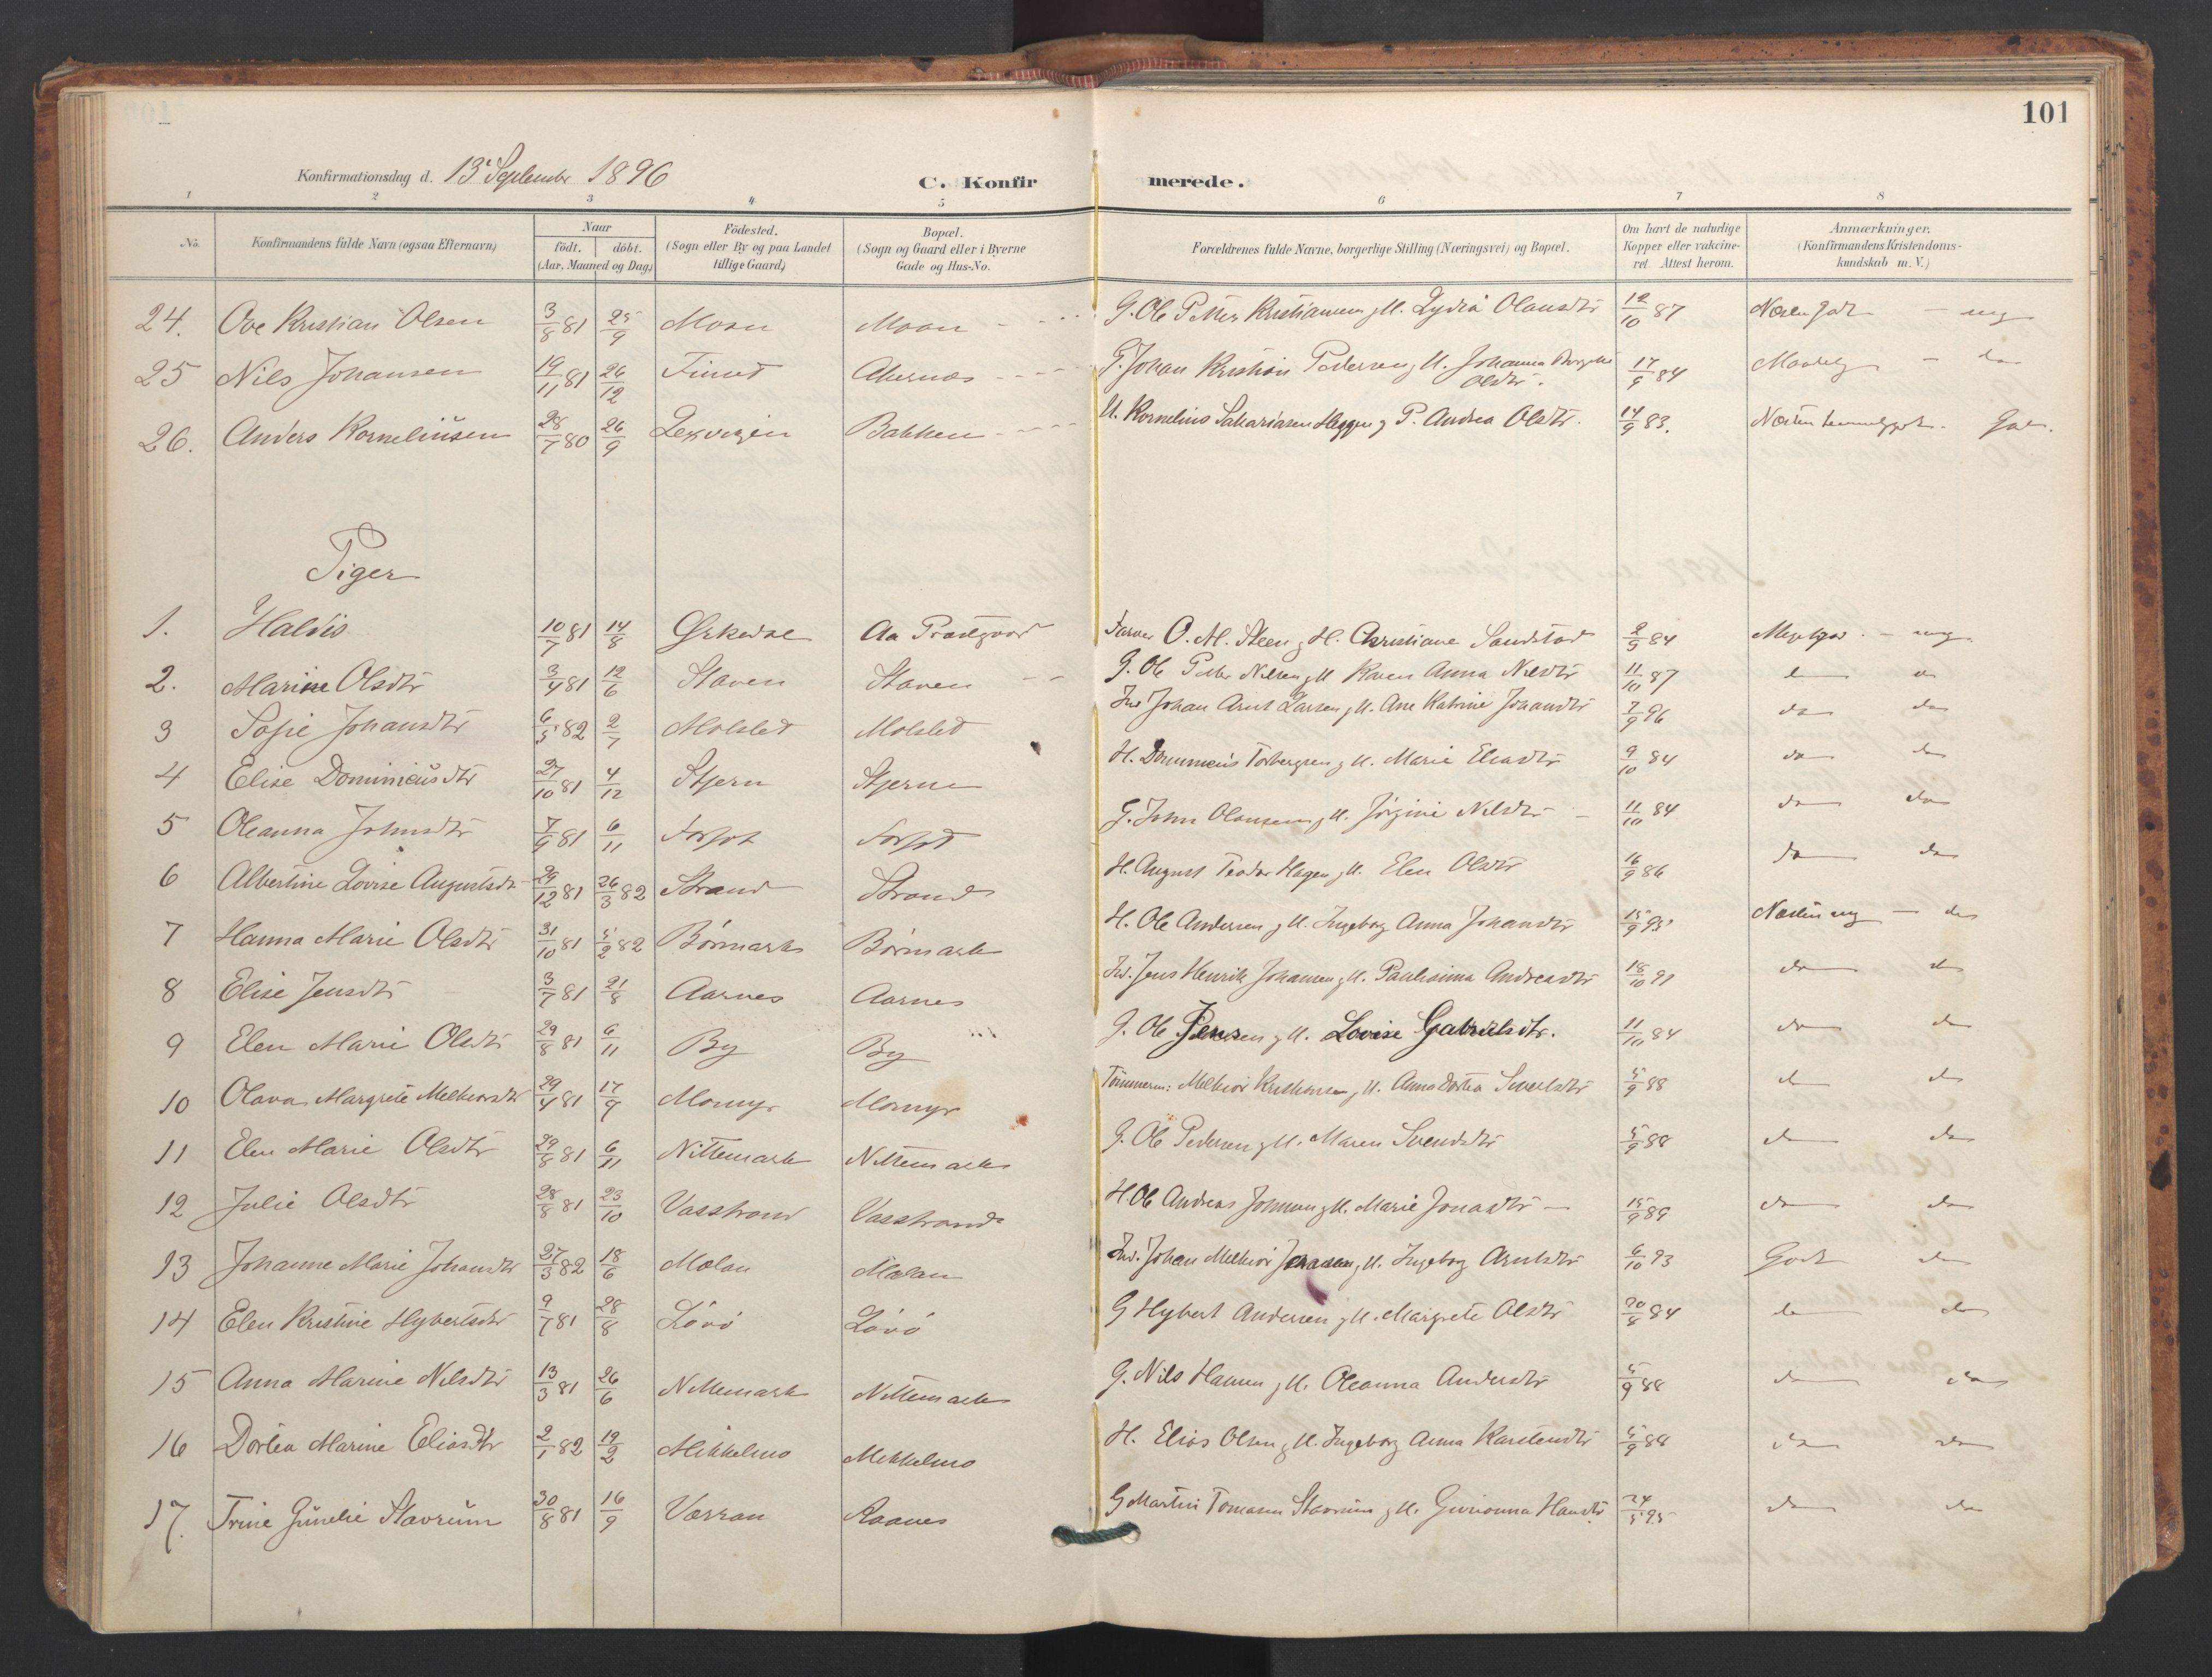 101
Konfirmationsdag d. 13 September 1896
C. Konfirmerede.
1 2 3 4 5 6 7 8
No. Konfirmandens fulde Navn (ogsaa Efternavn) Naar födt. döbt. (Aar, Maaned og Dag) Födested. (Sogn eller By og paa Landet tillige Gaard) Bopæl. (Sogn og Gaard eller i Byerne Gade og Hus-No. Forældrenes fulde Navne, borgerlige Stilling (Næringsvei) og Bopæl. Om havt de naturlige Kopper eller vakcineret. Attest herom. Anmærkninger. (Konfirmandens Kristendomskundskab m. V.)
24. Ove Kristian Olsen 3/8 81 25/9 Moan Moan G. Ole Petter Kristiansen g H. Lydia Olausdtr 12/10 87 Næsten godt - mg
25 Nils Johansen 19/11 81 26/12 Akernæs G. Johan Kristian Pedersen g H. Johanna Olsdtr. 17/9 84 Maadelig - do
26. Anders Korneliusen 28/7 80 26/9 Lexvigen Bakken Kornelius Sakariasen Heggen g P. Andrea Olsdtr. 14/9 83. Næsten temmelig godt. God.
Piger
1. Haldis 10/7 81 14/8 Ørkedal Aa Præstgaard Farver O. M. Steen g H. Christiane Sandstad 2/9 84 Megetgod - mg.
2. Marine Olsdtr 3/4 81 12/6 Staven Staven G. Ole Petter Nilsen g H Karen Anna Nilsdtr 11/10 87 do do
3 Sofie Johansdtr 6/5 82 2/7 Molslet Molslet Ind Johan Arnt Larsen g H. Ane Katrine Johansdtr 7/9 96 do do
4 Elise Dominicusdtr 27/10 81 4/12 Stjern Stjern H. Dominicus Torbergsen g H. Marie Eliasdtr 9/10 84 do do
5 Oleanna Johnsdtr 7/9 81 6/11 G. John Olausen g H. Jörgine Nilsdtr 11/10 84 do do
6 Albertine Lovise Augustsdtr 29/12 81 26/3 82 Strand Strand H. August Teodor Hagen g H. Elen Olsdtr 16/9 86 do do
7 Hanna Marie Olsdtr 31/10 81 5/2 82 Börmark Börmark H. Ole Andersen g H. Ingeborg Anna Johansdtr 15/9 95 Næsten mg - do
8 Elise Jensdtr 3/7 81 21/8 Aarnes Aarnes Ind. Jens Henrik Johansen g H. Paulisima Andreasdtr 18/10 91 do do
9 Elen Marie Olsdtr 29/8 81 6/11 By By G. Ole Jensen g H. Lovise Gabrielsdtr. 11/10 84 do do
10 Olava Margrete Melkiorsdtr 29/4 81 17/9 Momyr Momyr Tömmerm: Melkior Kristiansen g H. Anna Dortea Sivertsdtr 5/9 88 do do
11 Elen Marie Olsdtr 29/8 81 6/11 Nittemark Nittemark G. Ole Pedersen g H. Maren Svendsdtr 5/9 88 do do
12 Julie Olsdtr 28/8 81 23/10 Vasstrand Vasstrand H. Ole Andreas Johnsen g H. Marie Jonasdtr 15/9 89 do do
13 Johanne Marie Johansdtr 27/3 82 18/6 Mælan Mælan Ind. Johan Melkior Jonassen g H. Ingeborg Arntsdtr 6/10 93 Godt do
14 Elen Kristine Hybertsdtr 9/7 81 28/8 Lövö Lövö G Hybert Andersen g H. Margrete Olsdtr 20/8 84 do do
15 Anna Marine Nilsdtr 13/3 81 26/6 Nittemark Nittemark G. Nils Hansen g H. Oleanna Andersdtr 5/9 88 do do
16 Dortea Marine Eliasdtr 2/1 82 19/2 Mikkelmo Mikkelmo H. Elias Olsen g H. Ingeborg Anna Karstensdtr 5/9 88 do do
17. Trine Gunelie Stavrum 30/8 81 16/9 Værran Raanes G Martin Tomasen Stavrum g H. Gurianna Hansdtr 24/5 95 do do